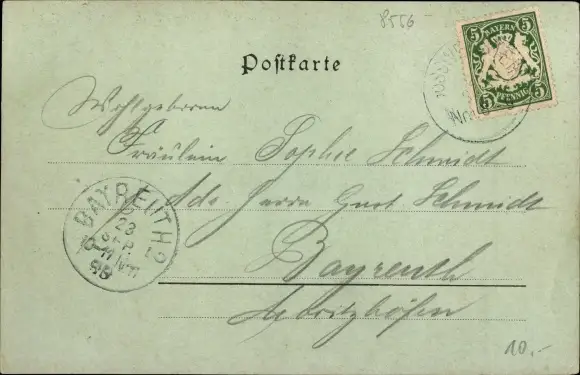 8556-
Postkarte
5 BAYERN 5
5 PFENNIG 5
Wohlgeboren
Fräulein Sophie Schmidt
Adr. Herrn Gust Schmidt
BAYREUTH 2
23
SEP
98
Bayreuth
10.-